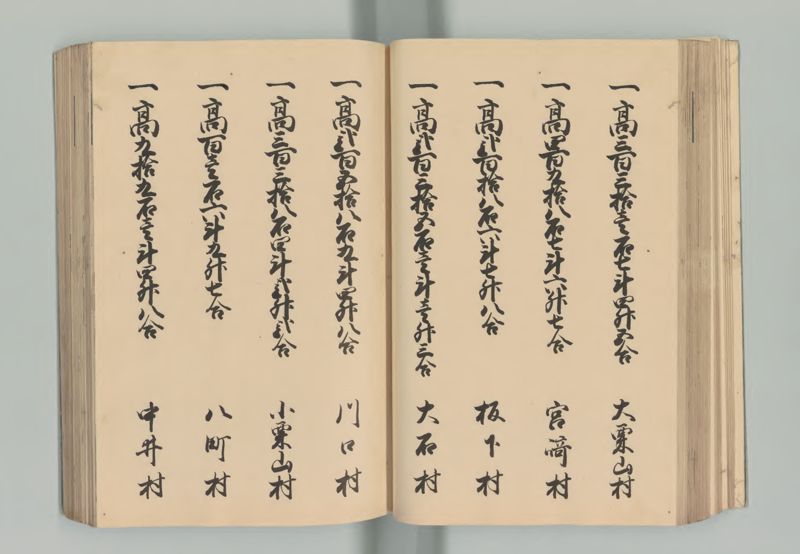 一高三百三拾壱石七斗四升五合 大粟山村
一高四百九拾八石七斗六升七合 宮崎村
一高弐百拾八石六斗七升八合 板下村
一高弐百三拾五石壱斗壱升三合 大石村
一高弐百五拾八石九斗四升八合 川口村
一高三百三拾八石四斗弐升弐合 小粟山村
一高百壱石六斗九升七合 八町村
一高九拾九石壱斗四升八合 中井村